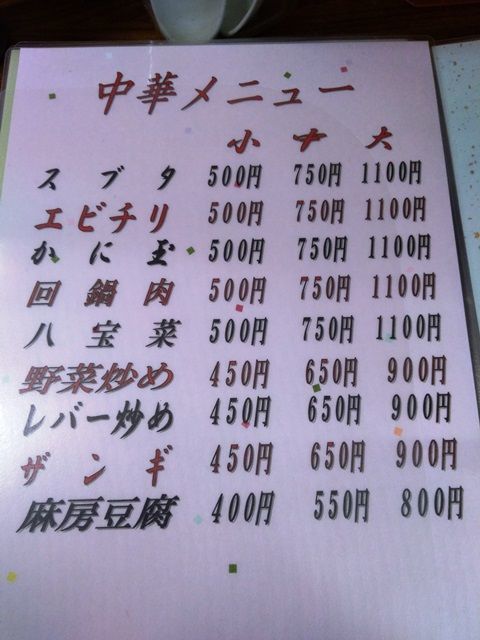 中華メニュー
小 中 大
スブタ 500円 750円 1100円
エビチリ 500円 750円 1100円
かに玉 500円 750円 1100円
回鍋肉 500円 750円 1100円
八宝菜 500円 750円 1100円
野菜炒め 450円 650円 900円
レバー炒め 450円 650円 900円
ザンギ 450円 650円 900円
麻房豆腐 400円 550円 800円